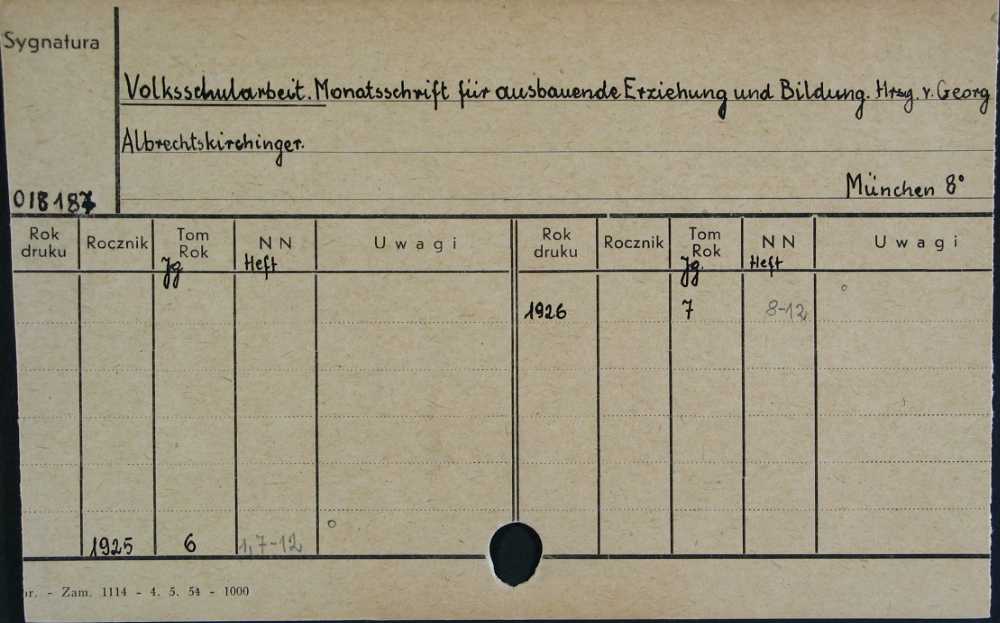 Sygnatura
Volksschularbeit. Monatsschrift für ausbauende Erziehung und Bildung. Hrsg. v. Georg
Albrechtskirchinger.
München 8°
Rok druku Rocznik Tom Rok N N U w a g i Rok druku Rocznik Tom Rok N N U w a g i
Jg Heft Jg. Heft
1926 7 8-12
1925 6 1,7-12
- Zam. 1114 - 4. 5. 54 - 1000